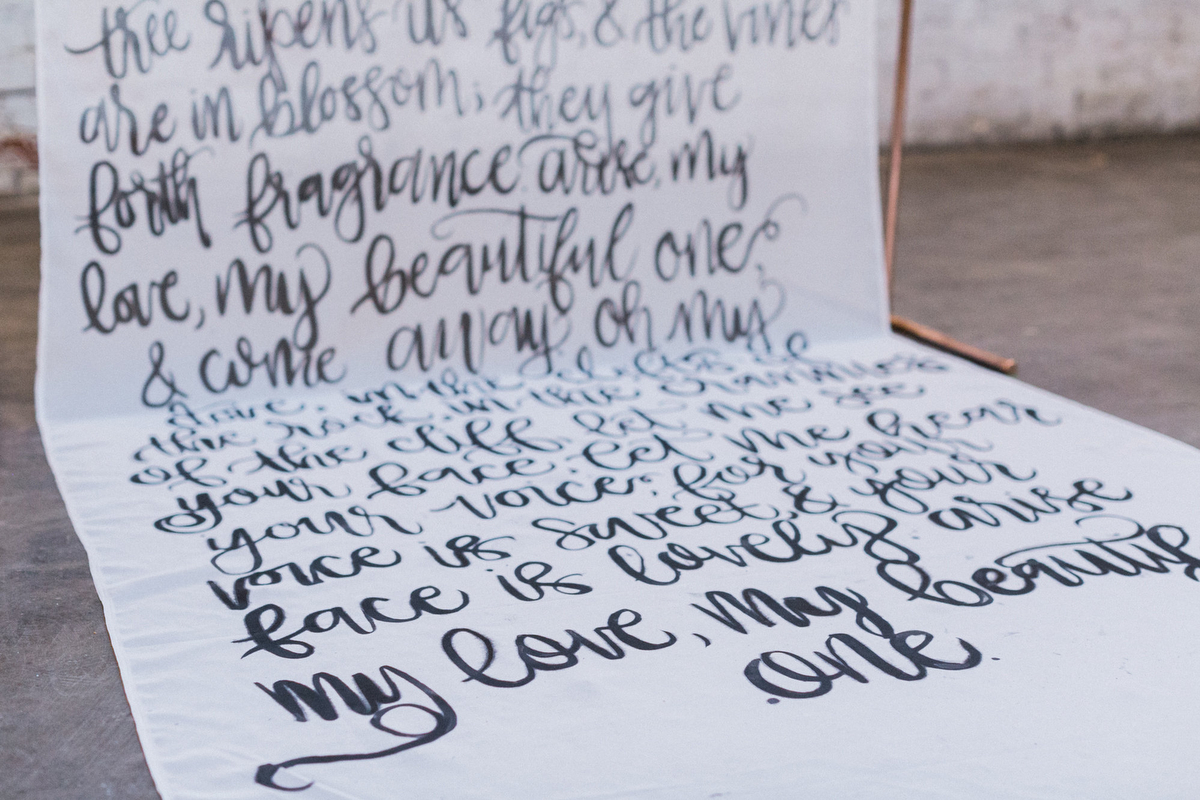 tree ripens its figs, & the vines
are in blossom; they give
forth fragrance. arise, my
love, my beautiful one,
& come away, oh my
dove, in the clefts of
the rock, in the crannies
of the cliff, let me see
your face. let me hear
your voice; for your
voice is sweet, & your
face is lovely. arise
my love, my beautif
one.